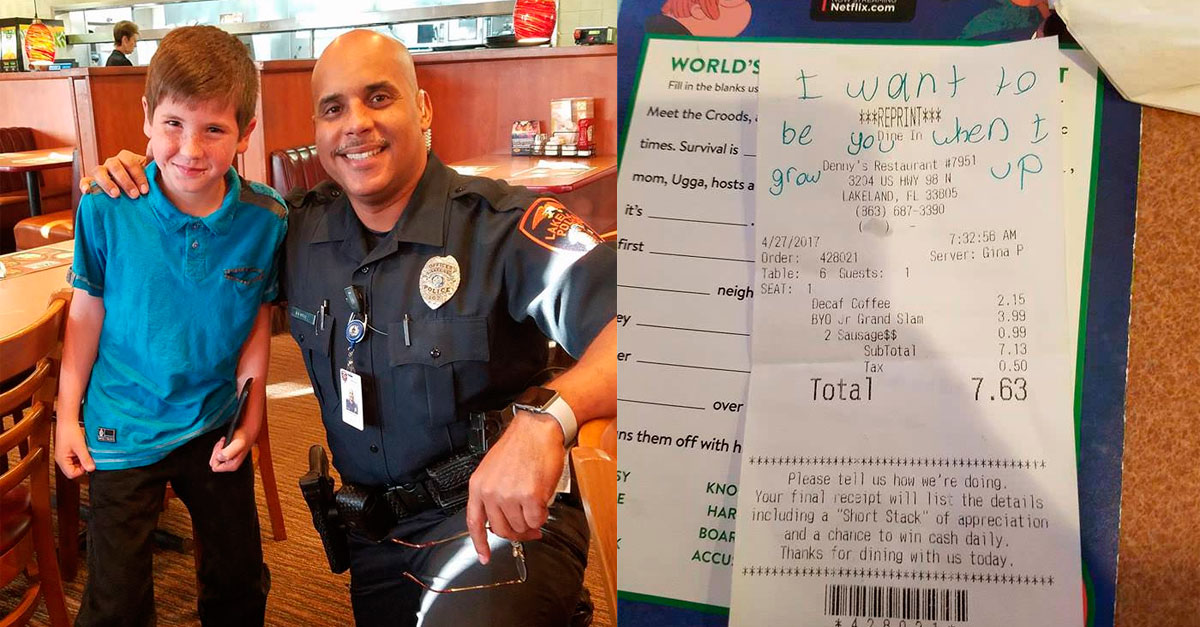 LAKEL
POLI
OFFICER
POLICE
NOW STREAMING
Netflix.com
WORLD'S
T
Fill in the blanks us
Meet the Croods, a
times. Survival is
mom, Ugga, hosts a
it's
first
neigh
ey
er
over
ns them off with h
SY
KNO
E
HAR
BOAR
K
ACCU
I want to
be you when I
grow up
***REPRINT***
Dine In
Denny's Restaurant #7951
3204 US HWY 98 N
LAKELAND, FL 33805
(863) 687-3390
4/27/2017 7:32:56 AM
Order: 428021 Server: Gina P
Table: 6 Guests: 1
SEAT: 1
Decaf Coffee 2.15
BYO Jr Grand Slam 3.99
2 Sausage$$ 0.99
SubTotal 7.13
Tax 0.50
Total 7.63
****************************************
Please tell us how we're doing.
Your final receipt will list the details
including a "Short Stack" of appreciation
and a chance to win cash daily.
Thanks for dining with us today.
****************************************
*428021*